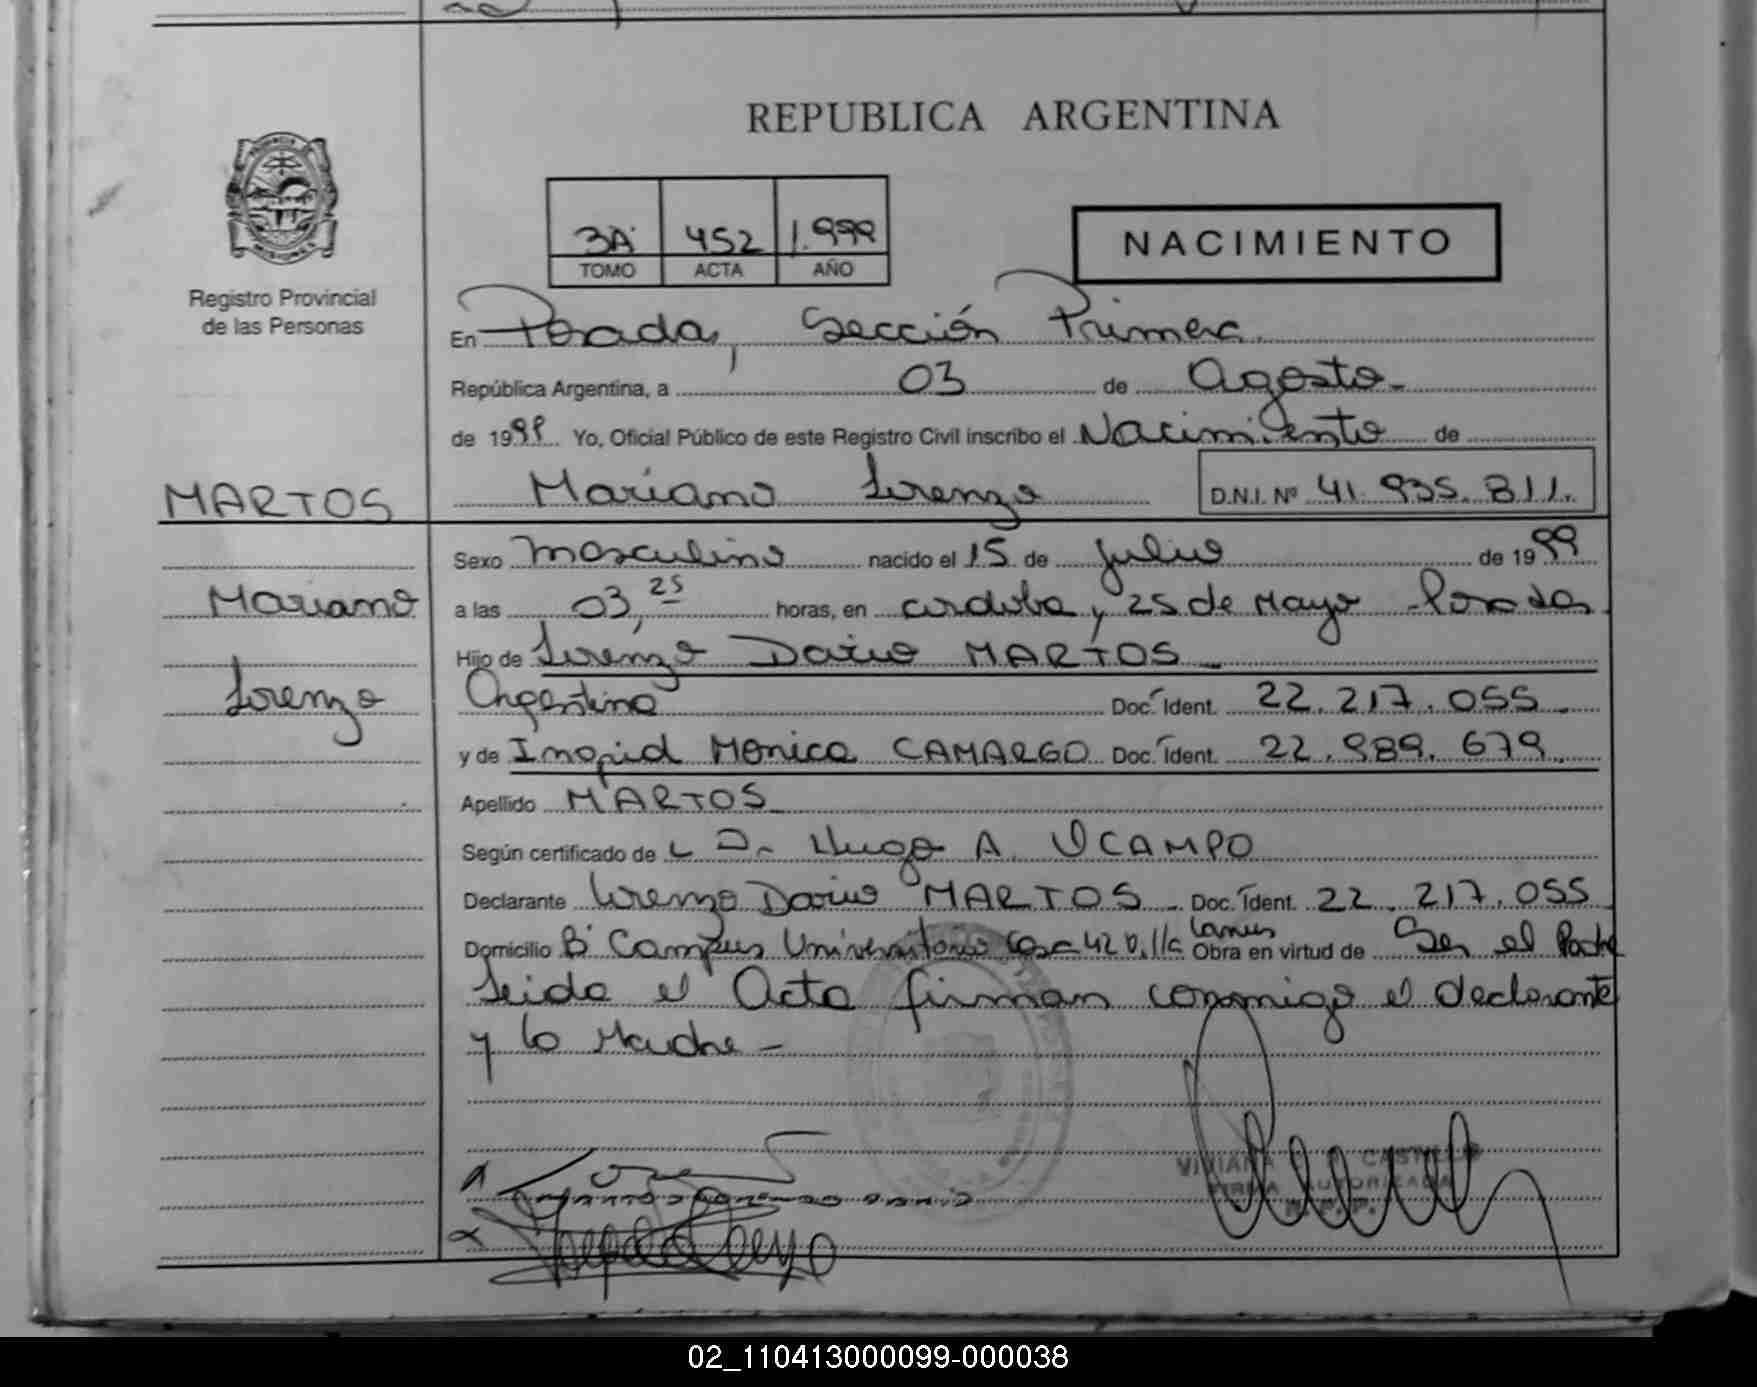 REPUBLICA ARGENTINA
3A 452 1.999
TOMO ACTA AÑO
NACIMIENTO
Registro Provincial
de las Personas
En Posadas, Sección Primera.
República Argentina, a 03 de Agosto.
de 1999 Yo, Oficial Público de este Registro Civil inscribo el Nacimiento de
MARTOS
Mariano Lorenzo D.N.I. Nº 41.935.811.
Sexo Masculino nacido el 15 de Julio de 1999
Mariano
a las 03,25 horas, en cordoba y 25 de Mayo Posadas
Hijo de Lorenzo Dario MARTOS
Lorenzo
Argentino Doc. Ident. 22.217.055
y de Ingrid Monica CAMARGO Doc. Ident. 22.989.679
Apellido MARTOS
Según certificado de L Dr Hugo A. OCAMPO
Declarante Lorenzo Dario MARTOS Doc. Ident. 22.217.055
Domicilio Bº Campus Universitario Casa 42 Villa Lanus Obra en virtud de Ser el Padre
Leida el Acta firman conmigo el declarante
y la Madre -
VIVIANA CASTILLO
FIRMA AUTORIZADA
R.P.P.
02_110413000099-000038